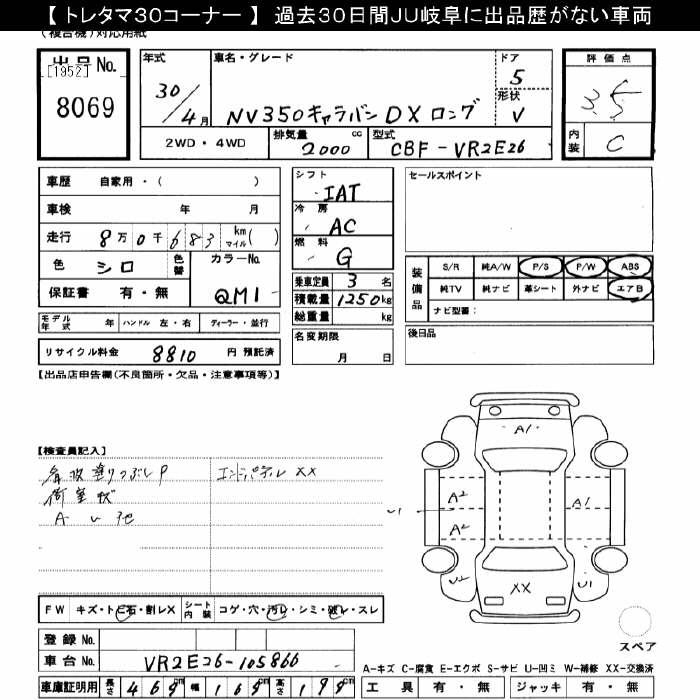 【 トレタマ30コーナー 】 過去30日間JU岐阜に出品歴がない車両
(複合機)対応用紙
出品 No.
[1952]
8069
年式
30/4月
車名・グレード
NV350キャラバン DX ロング
ドア
5
形状
V
評価点
3.5
内装
C
2WD・4WD
排気量
2000 cc
型式
CBF-VR2E26
車歴 自家用・( )
車検 年 月
走行 8万0千683 km マイル( )
色 シロ 色替 カラーNo.
QM1
保証書 有・無
モデル年式 年 ハンドル 左・右 ディーラー・並行
リサイクル料金 8810 円 預託済
シフト
IAT
冷房
AC
燃料
G
乗車定員 3 名
積載量 1250kg
総重量 kg
名変期限
月 日
セールスポイント
装備品
S/R 純A/W P/S P/W ABS
純TV 純ナビ 革シート 外ナビ エアB
ナビ型番:
後日品
【出品店申告欄(不良箇所・欠品・注意事項等)】
【検査員記入】
エンドパネル XX
荷室
A U
A1
A2
A2
A1
U1
U2
U1
XX
FW キズ・トビ石・割レX シート内装 コゲ・穴・汚レ・シミ・破レ・スレ
スペア
登録 No.
車台 No. VR2E26-105866
A-キズ C-腐食 E-エクボ S-サビ U-凹ミ W-補修 XX-交換済
車庫証明用 長さ 469cm 幅 169cm 高さ 199cm
工具 有・無 ジャッキ 有・無